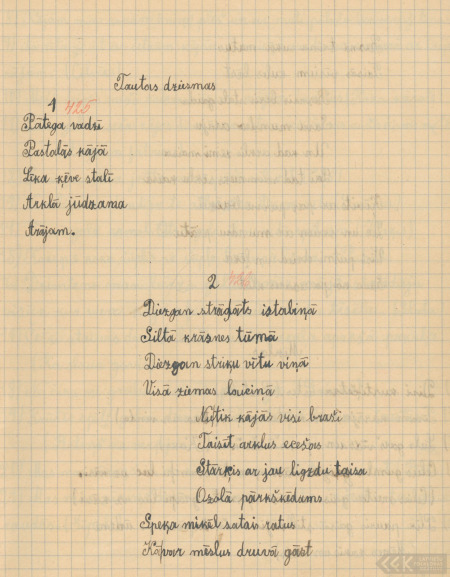 Tautas dziesmas
1 425
Pātega vadzī
Pastalās kājā
Lika ķēve stalī
Arklā jūdzama
Arājam.
2
Diezgan strādāts istabiņā
Siltā krāsnes tūmā
Diezgan striķu vītu viņā
Visā ziemas laiciņā
kājās visi braši
Taisit arklus ecešas
Stārķis ar jau ligzdu taisa
Ozolā pārkškēdams
Speķa miķel satais ratus
mēslus druvā gāst